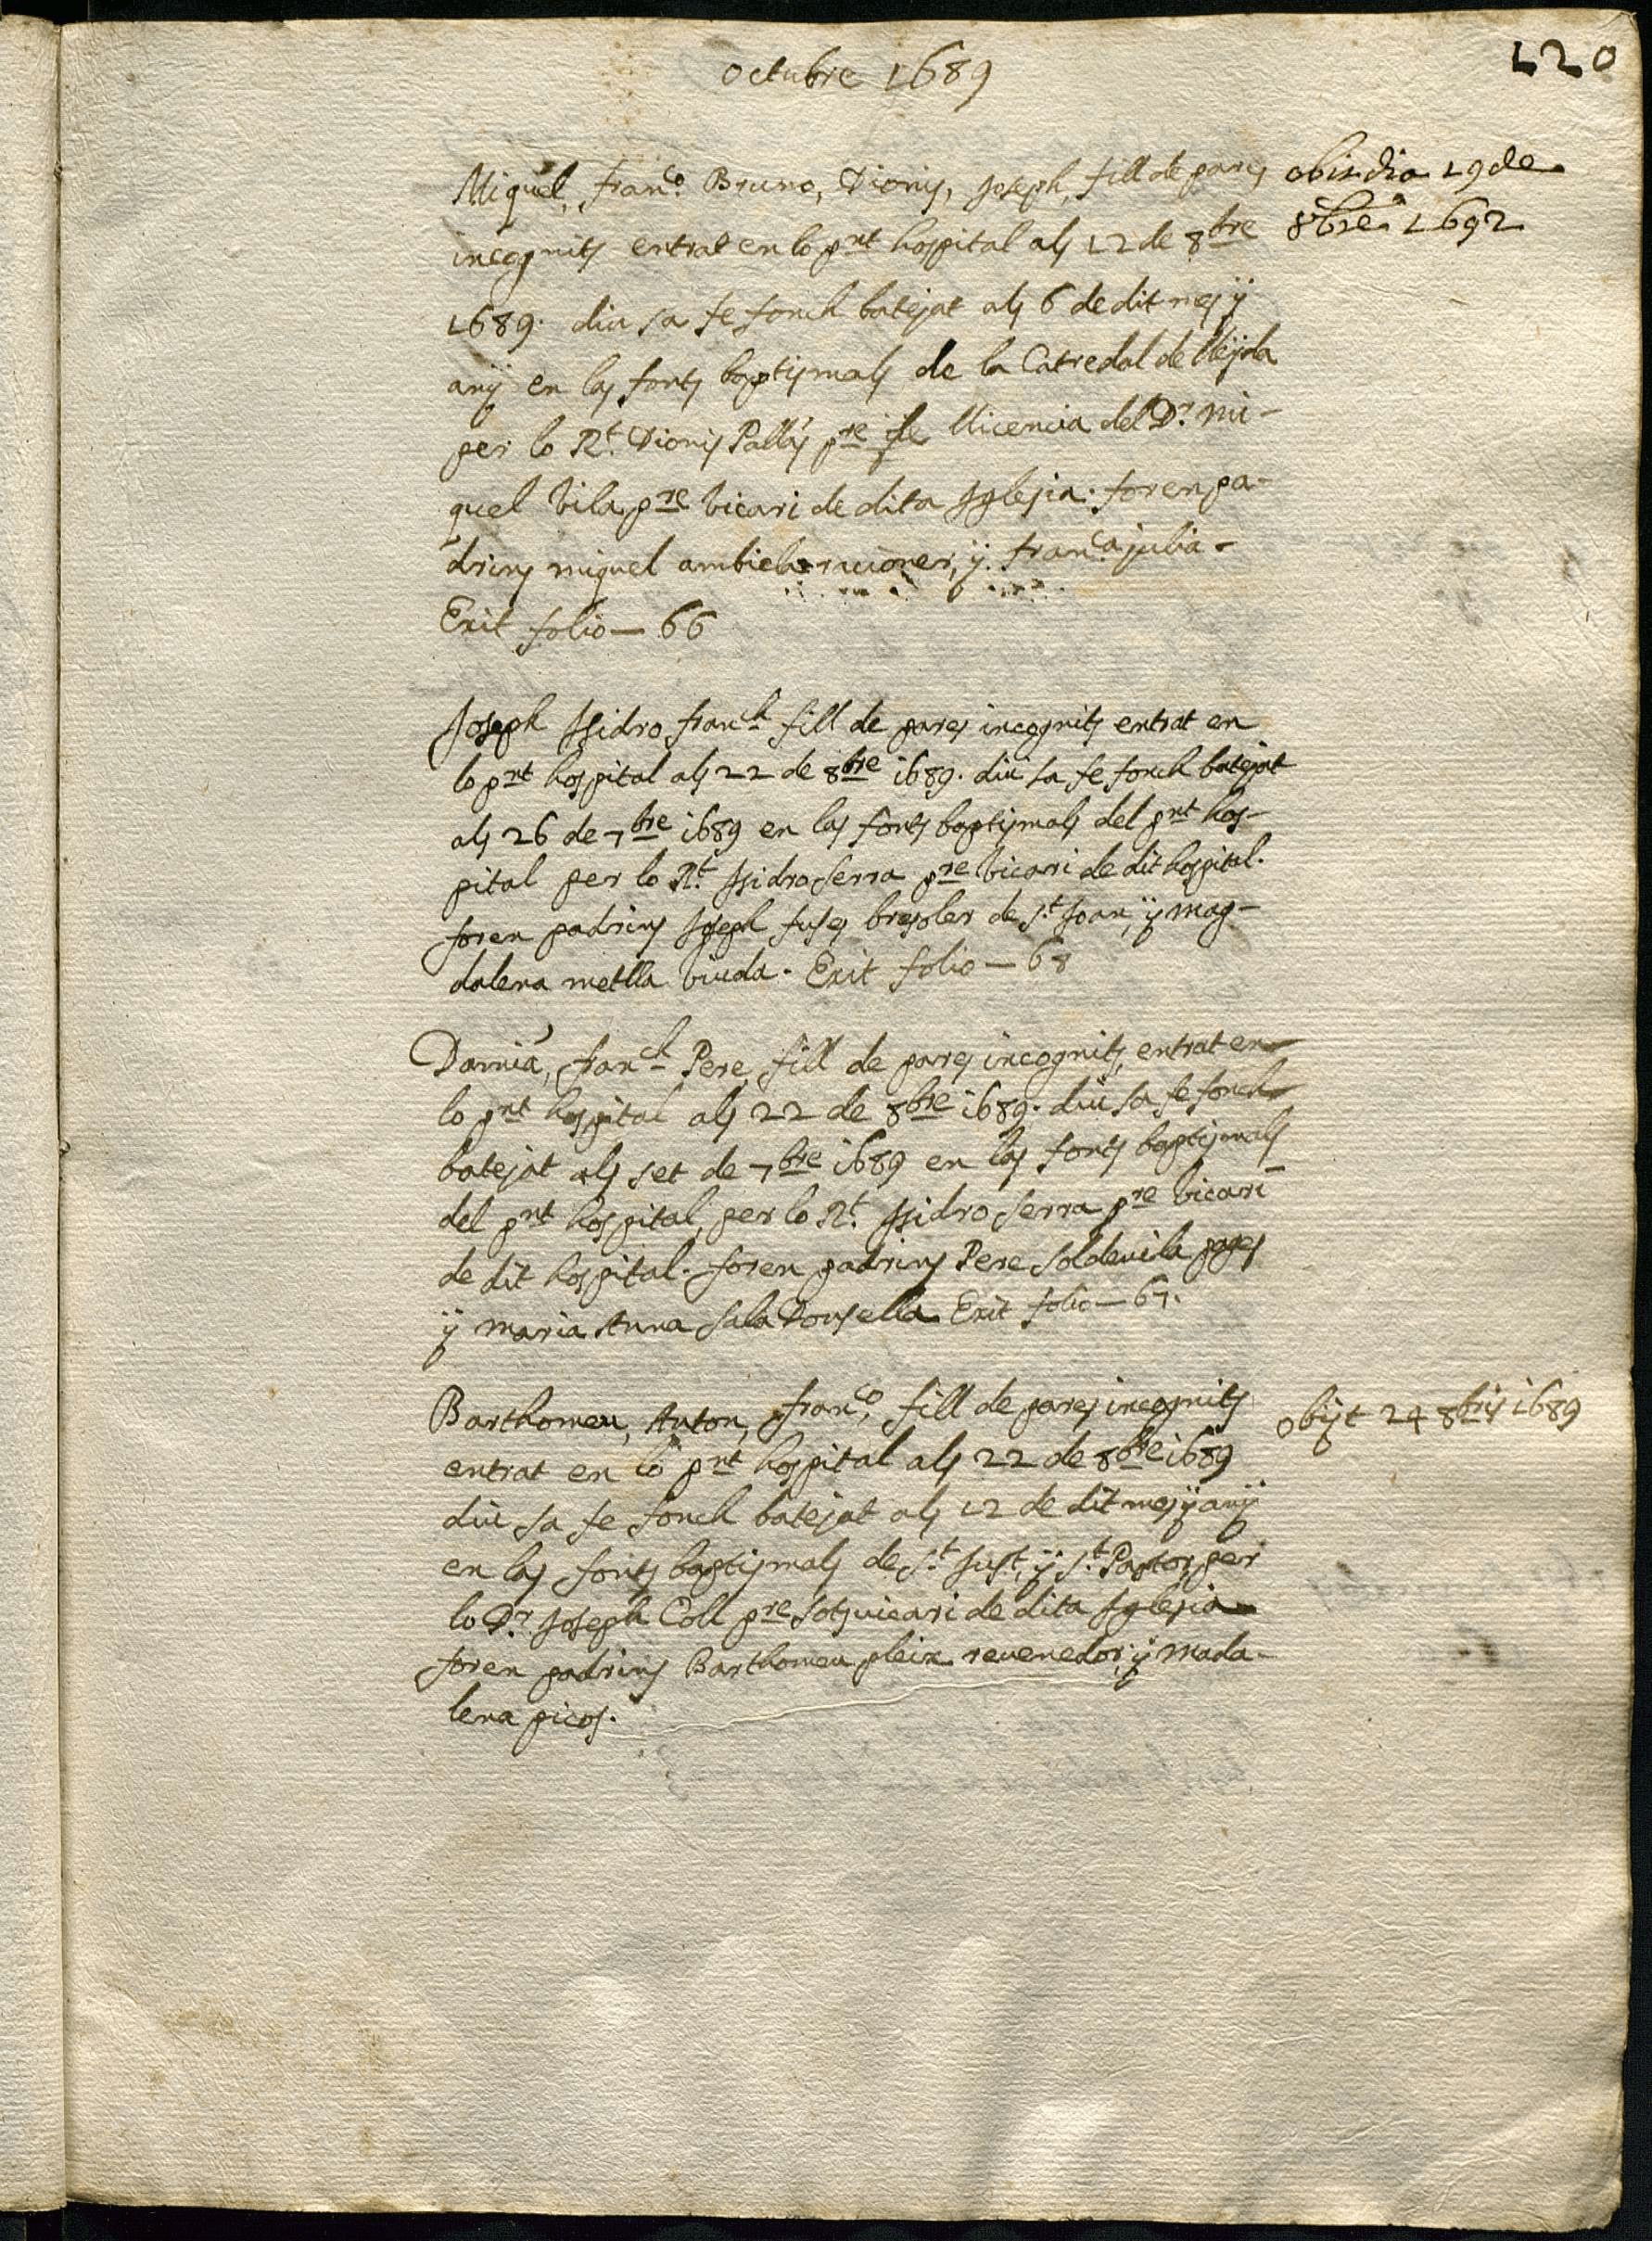 octubre 1689
120
Miquel, Franco. Bruno, Dionis, Joseph, fill de pares
incognits entrat en lo pnt hospital als 12 de 8bre
1689. diu sa fe fonch batejat als 6 de dit mes y
any en las fonts baptismals de la Catredal de lleyda
per lo Rt. Dionis Pallás pre de llicencia del Dr. Mi-
quel Vila pre vicari de dita Iglesia. foren pa-
drins miquel ambiela racioner, y franca julia
Exit folio — 66
obit dia 19 de
8bre 1692
Joseph Isidro Franch fill de pares incognits entrat en
lo pnt hospital als 22 de 8bre 1689. diu sa fe fonch batejat
als 26 de 7bre 1689 en las fonts baptismals del pnt hos-
pital per lo Rt. Isidro Serra pre vicari de dit hospital.
foren padrins Joseph fuses brasoler de St Joan, y mag-
dalena metlla viuda. Exit folio — 68
Damiá, Franch Pere fill de pares incognits, entrat en
lo pnt hospital als 22 de 8bre 1689. diu sa fe fonch
batejat als set de 7bre 1689 en las fonts baptismals
del pnt hospital, per lo Rt. Isidro Serra pre vicari
de dit hospital. foren padrins Pere Soldevila pages
y maria Anna Sala Donsella Exit folio — 67.
Barthomeu, Anton, franco, fill de pares incognits
entrat en lo pnt hospital als 22 de 8bre 1689
diu sa fe fonch batejat als 12 de dit mes y any
en las fonts baptismals de St Just, y St. Pastor, per
lo Dr. Joseph Coll pre sotsvicari de dita Iglesia
foren padrins Barthomeu pleix revenedor, y mada-
lena picos.
obijt 24 8bris 1689